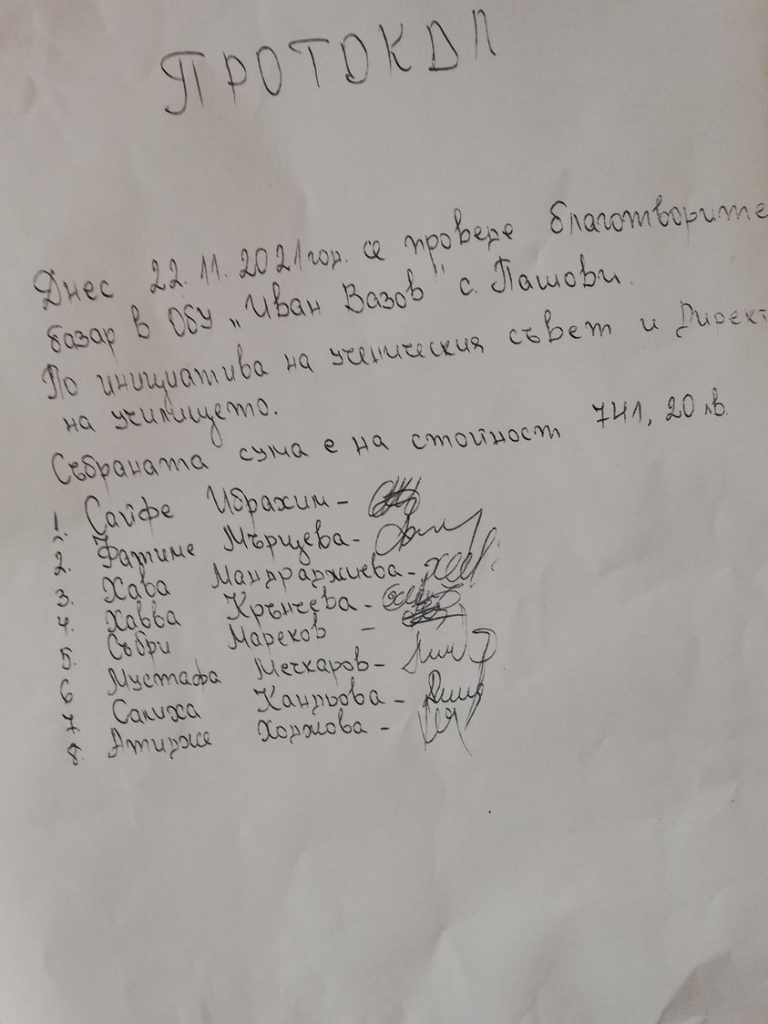 ПРОТОКОЛ
Днес 22.11.2021 год. се проведе благотворите
базар в ОбУ „Иван Вазов" с. Пашови.
По инициатива на ученическия съвет и Директ
на училището.
Събраната сума е на стойност 741,20 лв.
1. Сайфе Ибрахим -
2. Фатиме Мърцева -
3. Хава Мандраджиева -
4. Хавва Крънчева -
5. Събри Мареков -
6 Мустафа Мечкаров -
7 Салиха Кандьова -
8. Атидже Ходжова -